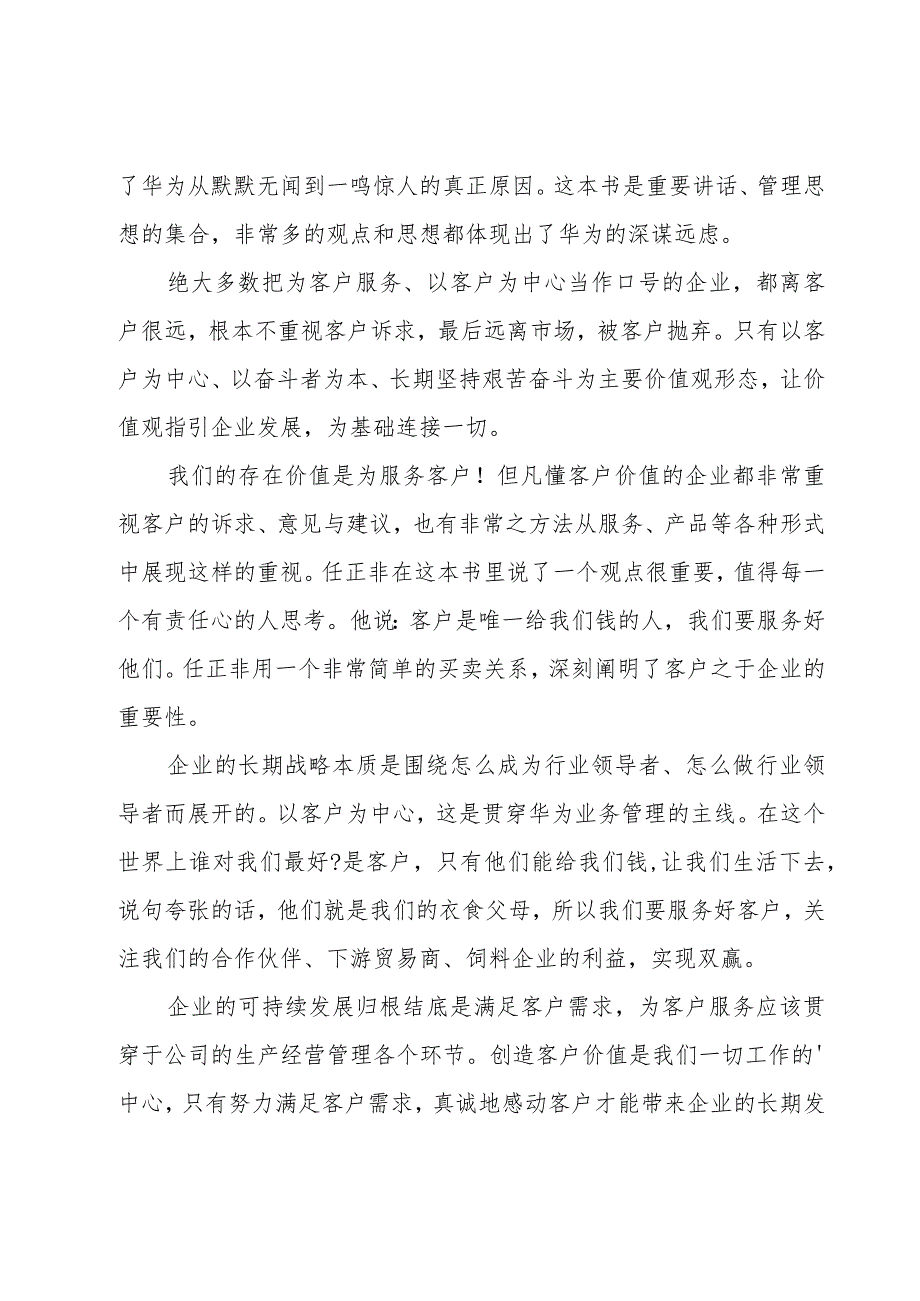 了华为从默默无闻到一鸣惊人的真正原因。这本书是重要讲话、管理思
想的集合，非常多的观点和思想都体现出了华为的深谋远虑。
绝大多数把为客户服务、以客户为中心当作口号的企业，都离客
户很远，根本不重视客户诉求，最后远离市场，被客户抛弃。只有以客
户为中心、以奋斗者为本、长期坚持艰苦奋斗为主要价值观形态，让价
值观指引企业发展，为基础连接一切。
我们的存在价值是为服务客户！但凡懂客户价值的企业都非常重
视客户的诉求、意见与建议，也有非常之方法从服务、产品等各种形式
中展现这样的重视。任正非在这本书里说了一个观点很重要，值得每一
个有责任心的人思考。他说：客户是唯一给我们钱的人，我们要服务好
他们。任正非用一个非常简单的买卖关系，深刻阐明了客户之于企业的
重要性。
企业的长期战略本质是围绕怎么成为行业领导者、怎么做行业领
导者而展开的。以客户为中心，这是贯穿华为业务管理的主线。在这个
世界上谁对我们最好?是客户，只有他们能给我们钱,让我们生活下去，
说句夸张的话，他们就是我们的衣食父母，所以我们要服务好客户，关
注我们的合作伙伴、下游贸易商、饲料企业的利益，实现双赢。
企业的可持续发展归根结底是满足客户需求，为客户服务应该贯
穿于公司的生产经营管理各个环节。创造客户价值是我们一切工作的'
中心，只有努力满足客户需求，真诚地感动客户才能带来企业的长期发